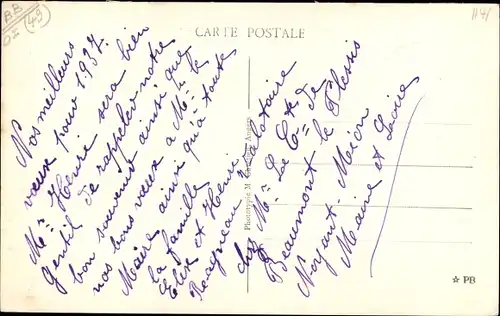 CARTE POSTALE
BB
(49)
Nos meilleurs
vœux pour 1937.
Mr Henri sera bien
Gentil de rappeler notre
bon souvenir ainsi que
nos bons vœux a Mr le
Maire ainsi qu'à toute
la famille
Elise et Henri
chez Mr Le Cte de
Beaumont le Plessis
Noyant-Méon
Maine et Loire
Phototypie M.
☆ PB